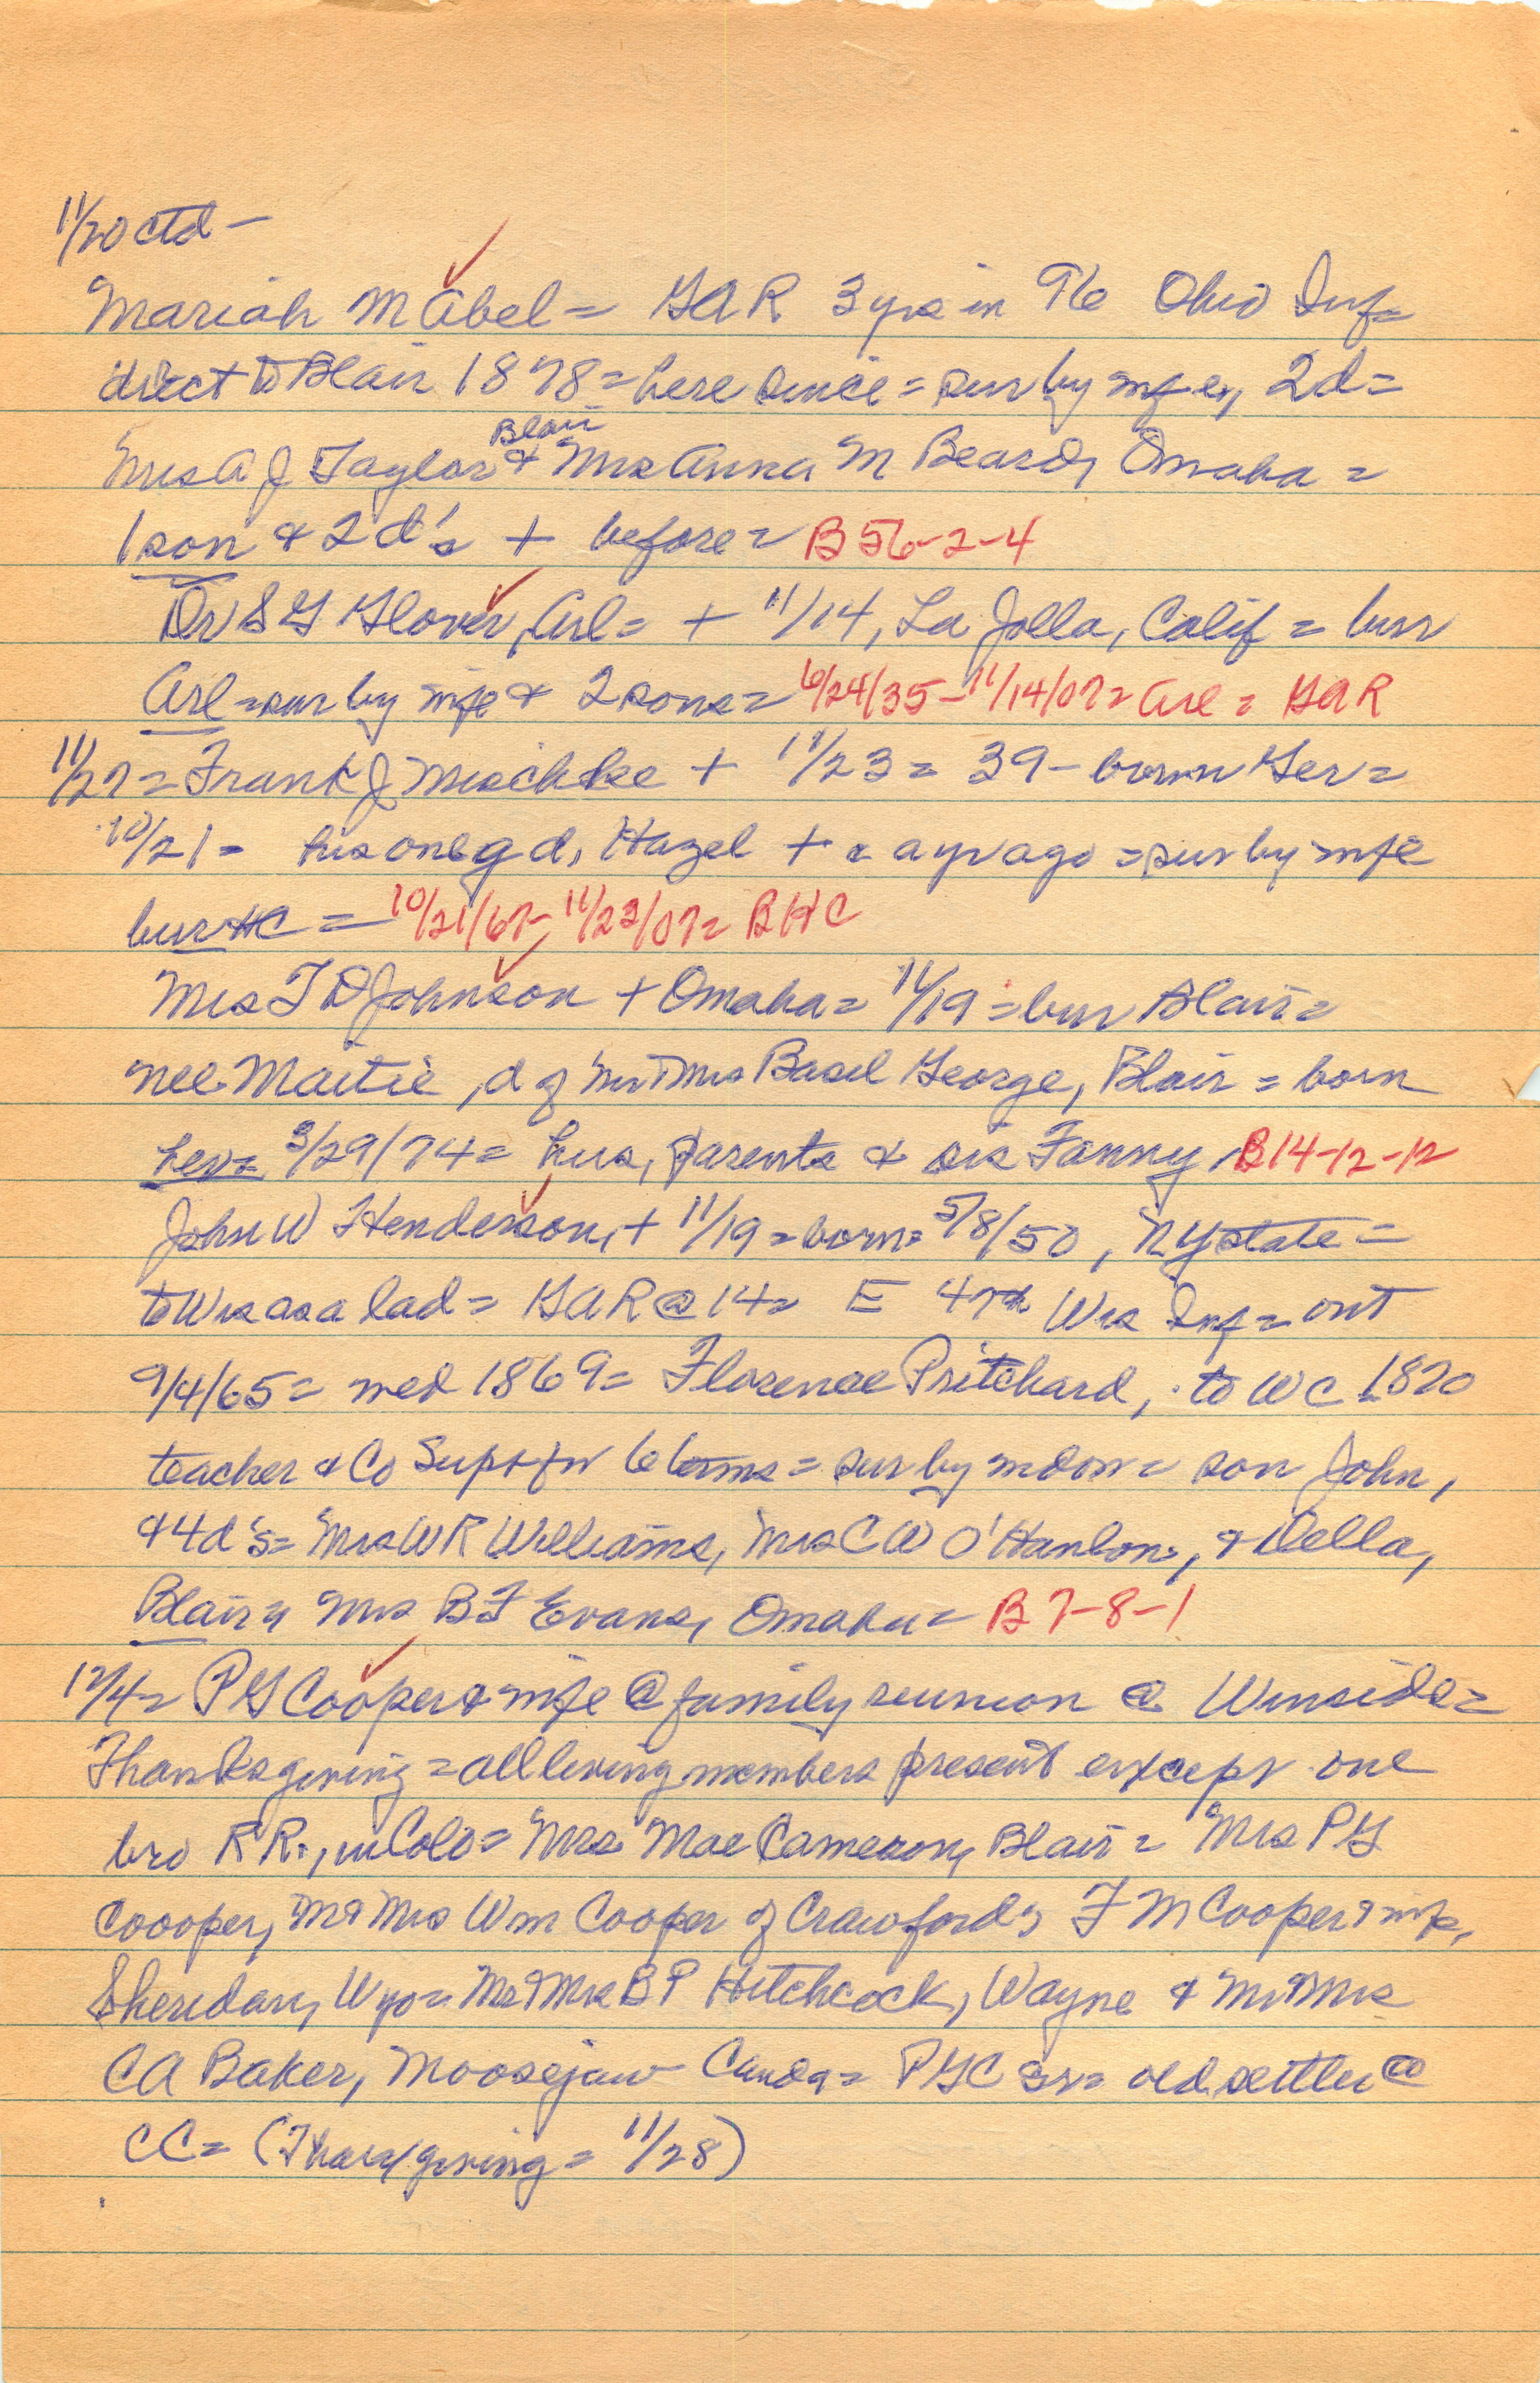 11/20 ctd -
Mariah M Abel = GAR 3 yrs in 96 Ohio Inf =
direct to Blair 1878 = here since = sur by wife, 2d =
Blair
Mrs A J Taylor & Mrs Anna M Beard, Omaha =
1 son & 2 d's + before = B 56-2-4
Dr S G Glover, Arl = + 11/14, La Jolla, Calif = bur
Arl = sur by wife & 2 sons = 6/24/35 - 11/14/07 = Arl = GAR
11/27 = Frank J Mischke + 11/23 = 39 - born Ger =
10/21 = his one g d, Hazel + a yr ago = sur by wife
bur HC = 10/21/67 - 11/23/07 = BHC
Mrs T D Johnson + Omaha = 11/19 = bur Blair =
nee Maitie, d of Mr & Mrs Basel George, Blair = born
here = 3/29/74 = hus, parents & sis Fanny, B14-12-12
John W Henderson, + 11/19 = born = 5/8/50, NY state =
to Wis as a lad = GAR @ 14 = E 47th Wis Inf = out
9/4/65 = wed 1869 = Florence Pritchard, to WC 1870
teacher & Co Supt for 6 terms = sur by widow = son John,
& 4 d's = Mrs W R Williams, Mrs C W O'Hanlon, & Della,
Blair, Mrs B F Evans, Omaha = B 7-8-1
12/4 = P G Cooper & wife @ family reunion @ Winside =
Thanksgiving = all living members present except one
bro R R., in Colo = Mrs Mae Cameron, Blair = Mrs P G
Coooper, M & Mrs Wm Cooper of Crawford, F M Cooper & wife,
Sheridan, Wyo = Mr & Mrs B P Hitchcock, Wayne & Mr & Mrs
C A Baker, Moosejaw Canda = P G C sr = old settler @
CC = (Thanksgiving = 11/28)